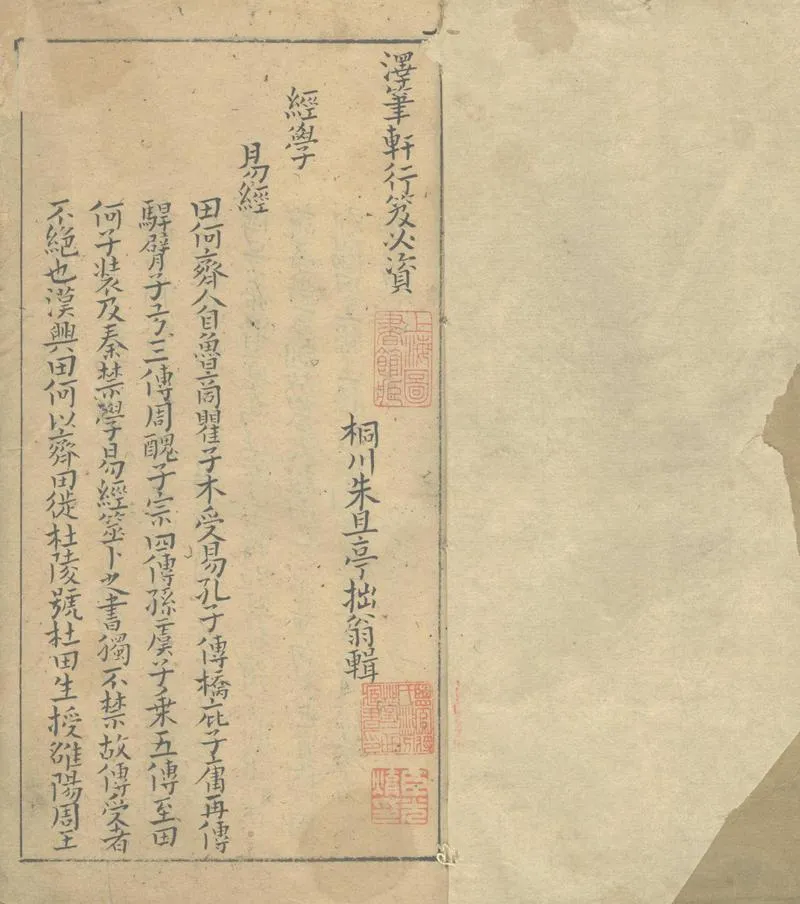 澤筆軒行笈必資
上海圖書館藏
桐川朱旦亭拙翁輯
經學
易經
田何齊人自魯商瞿子木受易孔子傳橋庇子庸再傳
馯臂子弓三傳周醜子宗四傳孫虞子乗五傳至田
何子装及秦禁學易經筮卜之書獨不禁故傳受者
不絕也漢興田何以齊田徙杜陵號杜田生授雒陽周王